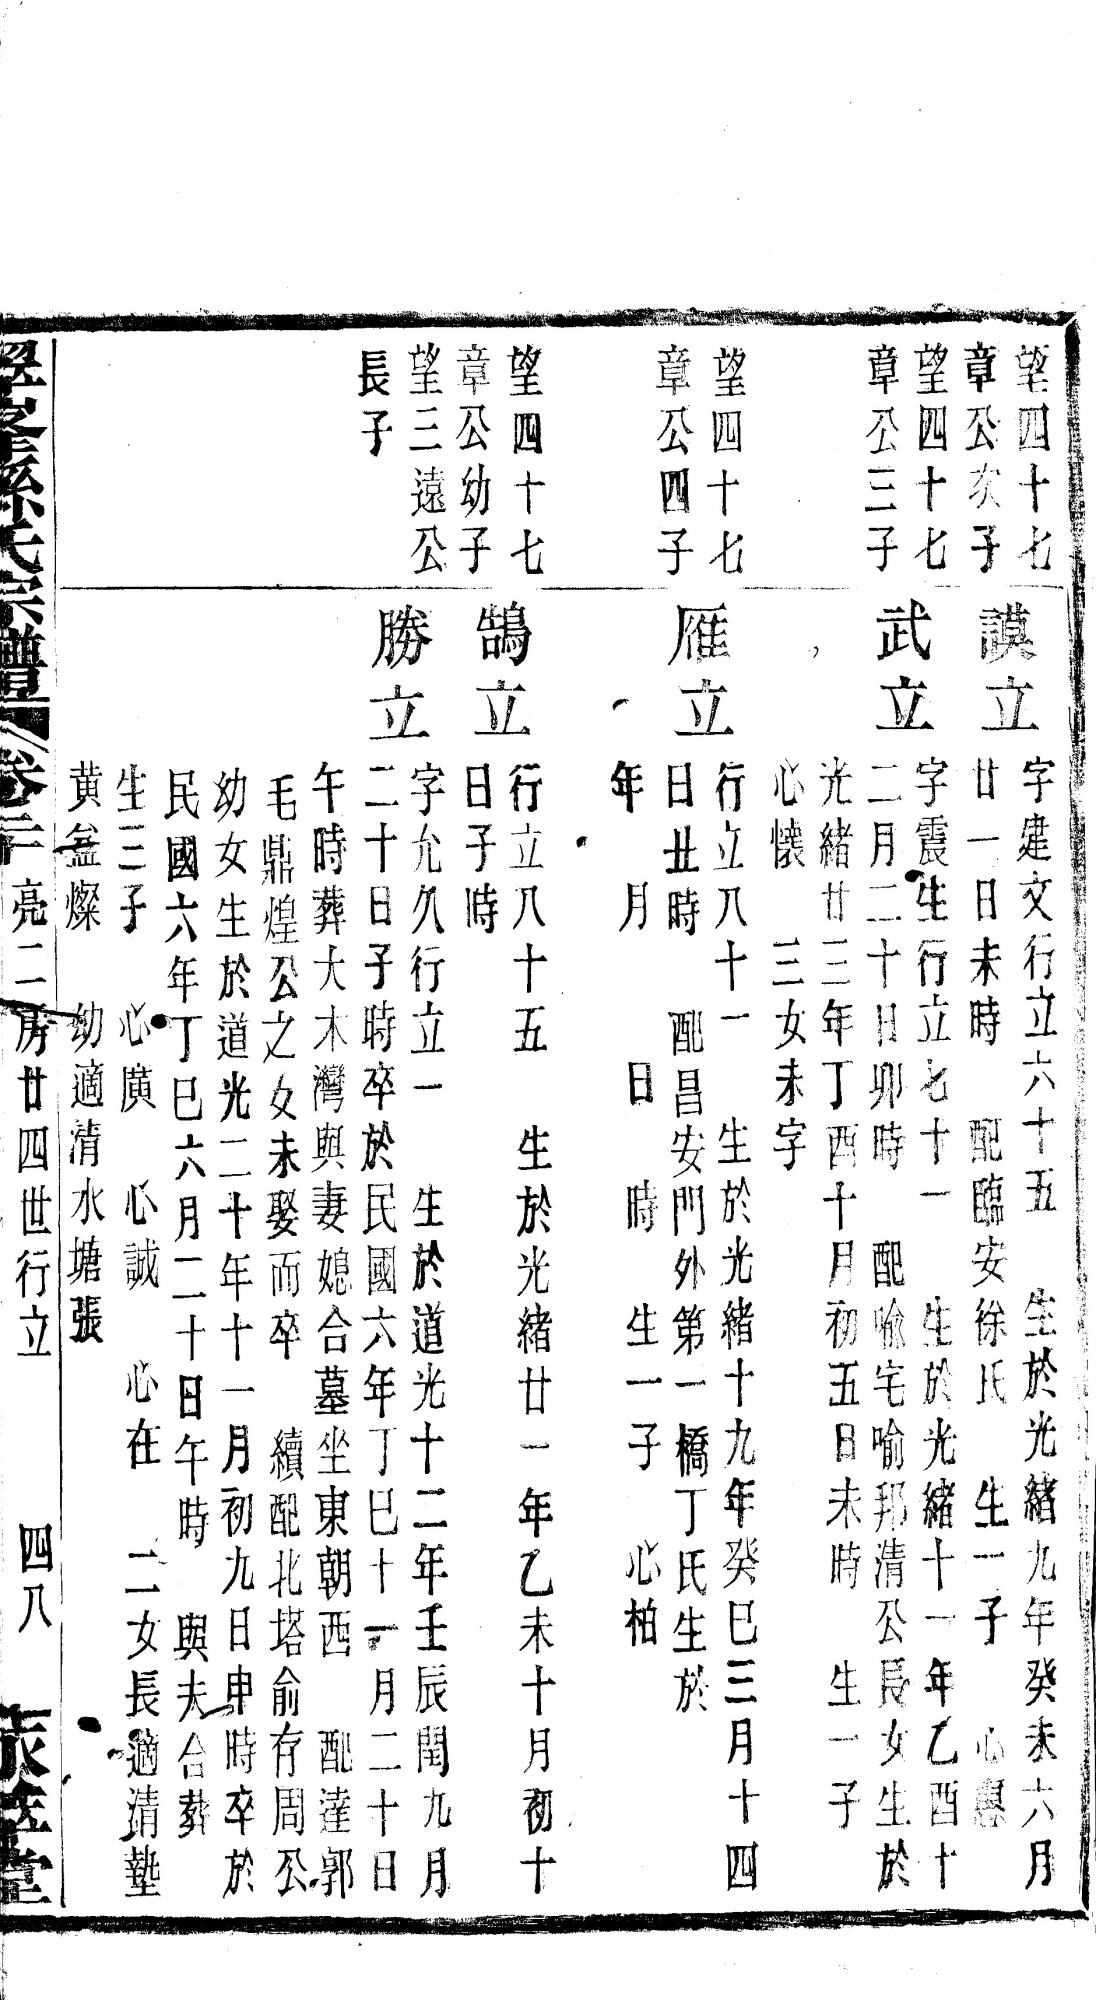 望四十七
章公次子
謨立
字建文行立六十五 生於光緒九年癸未六月
廿一日未時 配臨安徐氏 生一子 心惠
望四十七
章公三子
武立
字震生行立七十一 生於光緒十一年乙酉十
二月二十日卯時 配喻宅喻邦清公長女生於
光緒廿三年丁酉十月初五日未時 生一子
心懷 三女未字
望四十七
章公四子
雁立
行立八十一 生於光緒十九年癸巳三月十四
日丑時 配昌安門外第一橋丁氏生於
年 月 日 時 生一子 心柏
望四十七
章公幼子
鵠立
行立八十五 生於光緒廿一年乙未十月初十
日子時
望三遠公
長子
勝立
字允久行立一 生於道光十二年壬辰閏九月
二十日子時卒於民國六年丁巳十一月二十日
午時葬大木灣與妻媳合墓坐東朝西 配達郭
毛鼎煌公之女未娶而卒 續配北塔俞存周公
幼女生於道光二十年十一月初九日申時卒於
民國六年丁巳六月二十日午時 與夫合葬
生三子 心廣 心誠 心在 二女長適清墊
黄益燦 幼適清水塘張
孫氏宗譜 卷二 亮二房廿四世行立 四八 堂